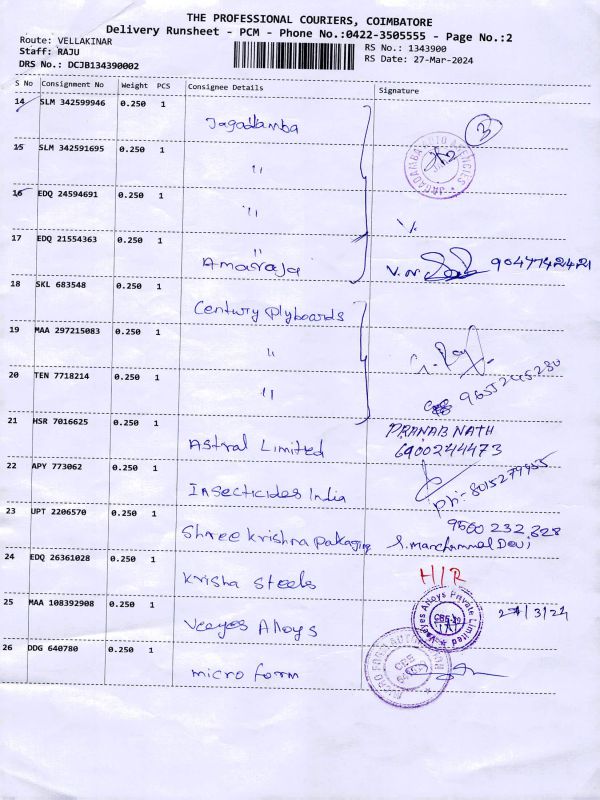 THE PROFESSIONAL COURIERS, COIMBATORE
Delivery Runsheet - PCM - Phone No.:0422-3505555 - Page No.:2
Route: VELLAKINAR
RS No.: 1343900
Staff: RAJU
RS Date: 27-Mar-2024
DRS No.: DCJB134390002
S No Consignment No Weight PCS Consignee Details Signature
14 SLM 342599946 0.250 1
Jagadamba
3
15 SLM 342591695 0.250 1
"
16 EDQ 24594691 0.250 1
"
17 EDQ 21554363 0.250 1
"
Amairaja
9047742421
18 SKL 683548 0.250 1
Century Plyboards
19 MAA 297215083 0.250 1
"
20 TEN 7718214 0.250 1
"
9655245280
21 HSR 7016625 0.250 1
Astral Limited
PRANAB NATH
6900244473
22 APY 773062 0.250 1
Insecticides India
Ph:- 8015279955
23 UPT 2206570 0.250 1
Shree Krishna Pakaging
9560 232 328
24 EDQ 26361028 0.250 1
Krisha Steels
H/R
25 MAA 108392908 0.250 1
Veeyes Alloys
Veeyes Alloys Private Limited
27/3/24
26 DDG 640780 0.250 1
micro form